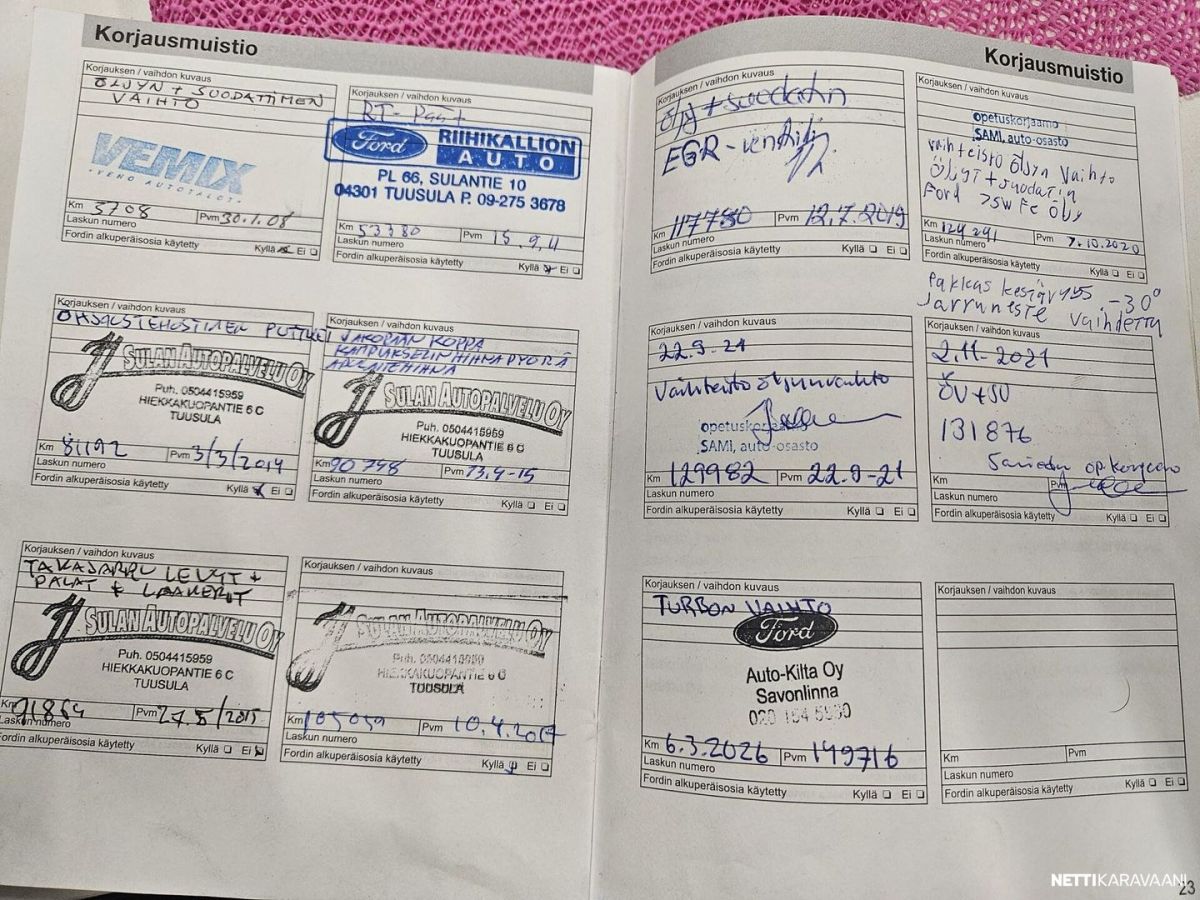 Korjausmuistio
Korjauksen / vaihdon kuvaus
ÖLJYN + SUODATTIMEN
VAIHTO
VEMIX
VENO AUTOTALOT
Km 3708 Pvm 30.1.08
Laskun numero
Fordin alkuperäisosia käytetty Kyllä Ei
Korjauksen / vaihdon kuvaus
Ford RIIHIKALLION
AUTO
PL 66, SULANTIE 10
04301 TUUSULA P. 09-275 3678
Km 53380 Pvm 15.9.11
Laskun numero
Fordin alkuperäisosia käytetty Kyllä Ei
Korjauksen / vaihdon kuvaus
OHJAUSTEHOSTIMEN PUTKET
SULAN AUTOPALVELU OY
Puh. 0504415959
HIEKKAKUOPANTIE 6 C
TUUSULA
Km 81192 Pvm 3/3/2014
Laskun numero
Fordin alkuperäisosia käytetty Kyllä Ei
Korjauksen / vaihdon kuvaus
JAKOPÄÄN KOPPA
KAMPUKSELIN HIHNAPYÖRÄ
APULAITEHIHNA
SULAN AUTOPALVELU OY
Puh. 0504415959
HIEKKAKUOPANTIE 6 C
TUUSULA
Km 90748 Pvm 13.4-15
Laskun numero
Fordin alkuperäisosia käytetty Kyllä Ei
Korjauksen / vaihdon kuvaus
TAKAJARRU LEVYT +
PALAT & LAAKERIT
SULAN AUTOPALVELU OY
Puh. 0504415959
HIEKKAKUOPANTIE 6 C
TUUSULA
Km 91864 Pvm 27.5/2015
Laskun numero
Fordin alkuperäisosia käytetty Kyllä Ei
Korjauksen / vaihdon kuvaus
SULAN AUTOPALVELU OY
Puh. 0504415959
HIEKKAKUOPANTIE 6 C
TUUSULA
Km 105059 Pvm 10.4.2017
Laskun numero
Fordin alkuperäisosia käytetty Kyllä Ei
Korjausmuistio
Korjauksen / vaihdon kuvaus
öljy + suodatin
EGR-venttiili
Km 117780 Pvm 12.7.2019
Laskun numero
Fordin alkuperäisosia käytetty Kyllä Ei
Korjauksen / vaihdon kuvaus
opetuskorjaamo
SAMI, auto-osasto
vaihteisto öljyn vaihto
öljyt + suodatin
Ford 75W FE öljy
Km 124291 Pvm 7.10.2020
Laskun numero
Fordin alkuperäisosia käytetty Kyllä Ei
Pakkas kestävyys -30°
Jarruneste vaihdettu
Korjauksen / vaihdon kuvaus
22.9-21
Vaihteisto öljynvaihto
opetuskorjaamo
SAMI, auto-osasto
Km 129982 Pvm 22.9-21
Laskun numero
Fordin alkuperäisosia käytetty Kyllä Ei
Korjauksen / vaihdon kuvaus
2.11-2021
ÖV+SU
131876
Samiedu op.korjaamo
Km Pvm
Laskun numero
Fordin alkuperäisosia käytetty Kyllä Ei
Korjauksen / vaihdon kuvaus
TURBON VAIHTO
Ford
Auto-Kilta Oy
Savonlinna
Km 6.3.2026 Pvm 149716
Laskun numero
Fordin alkuperäisosia käytetty Kyllä Ei
Korjauksen / vaihdon kuvaus
Km Pvm
Laskun numero
Fordin alkuperäisosia käytetty Kyllä Ei
NETTIKARAVAANI
23